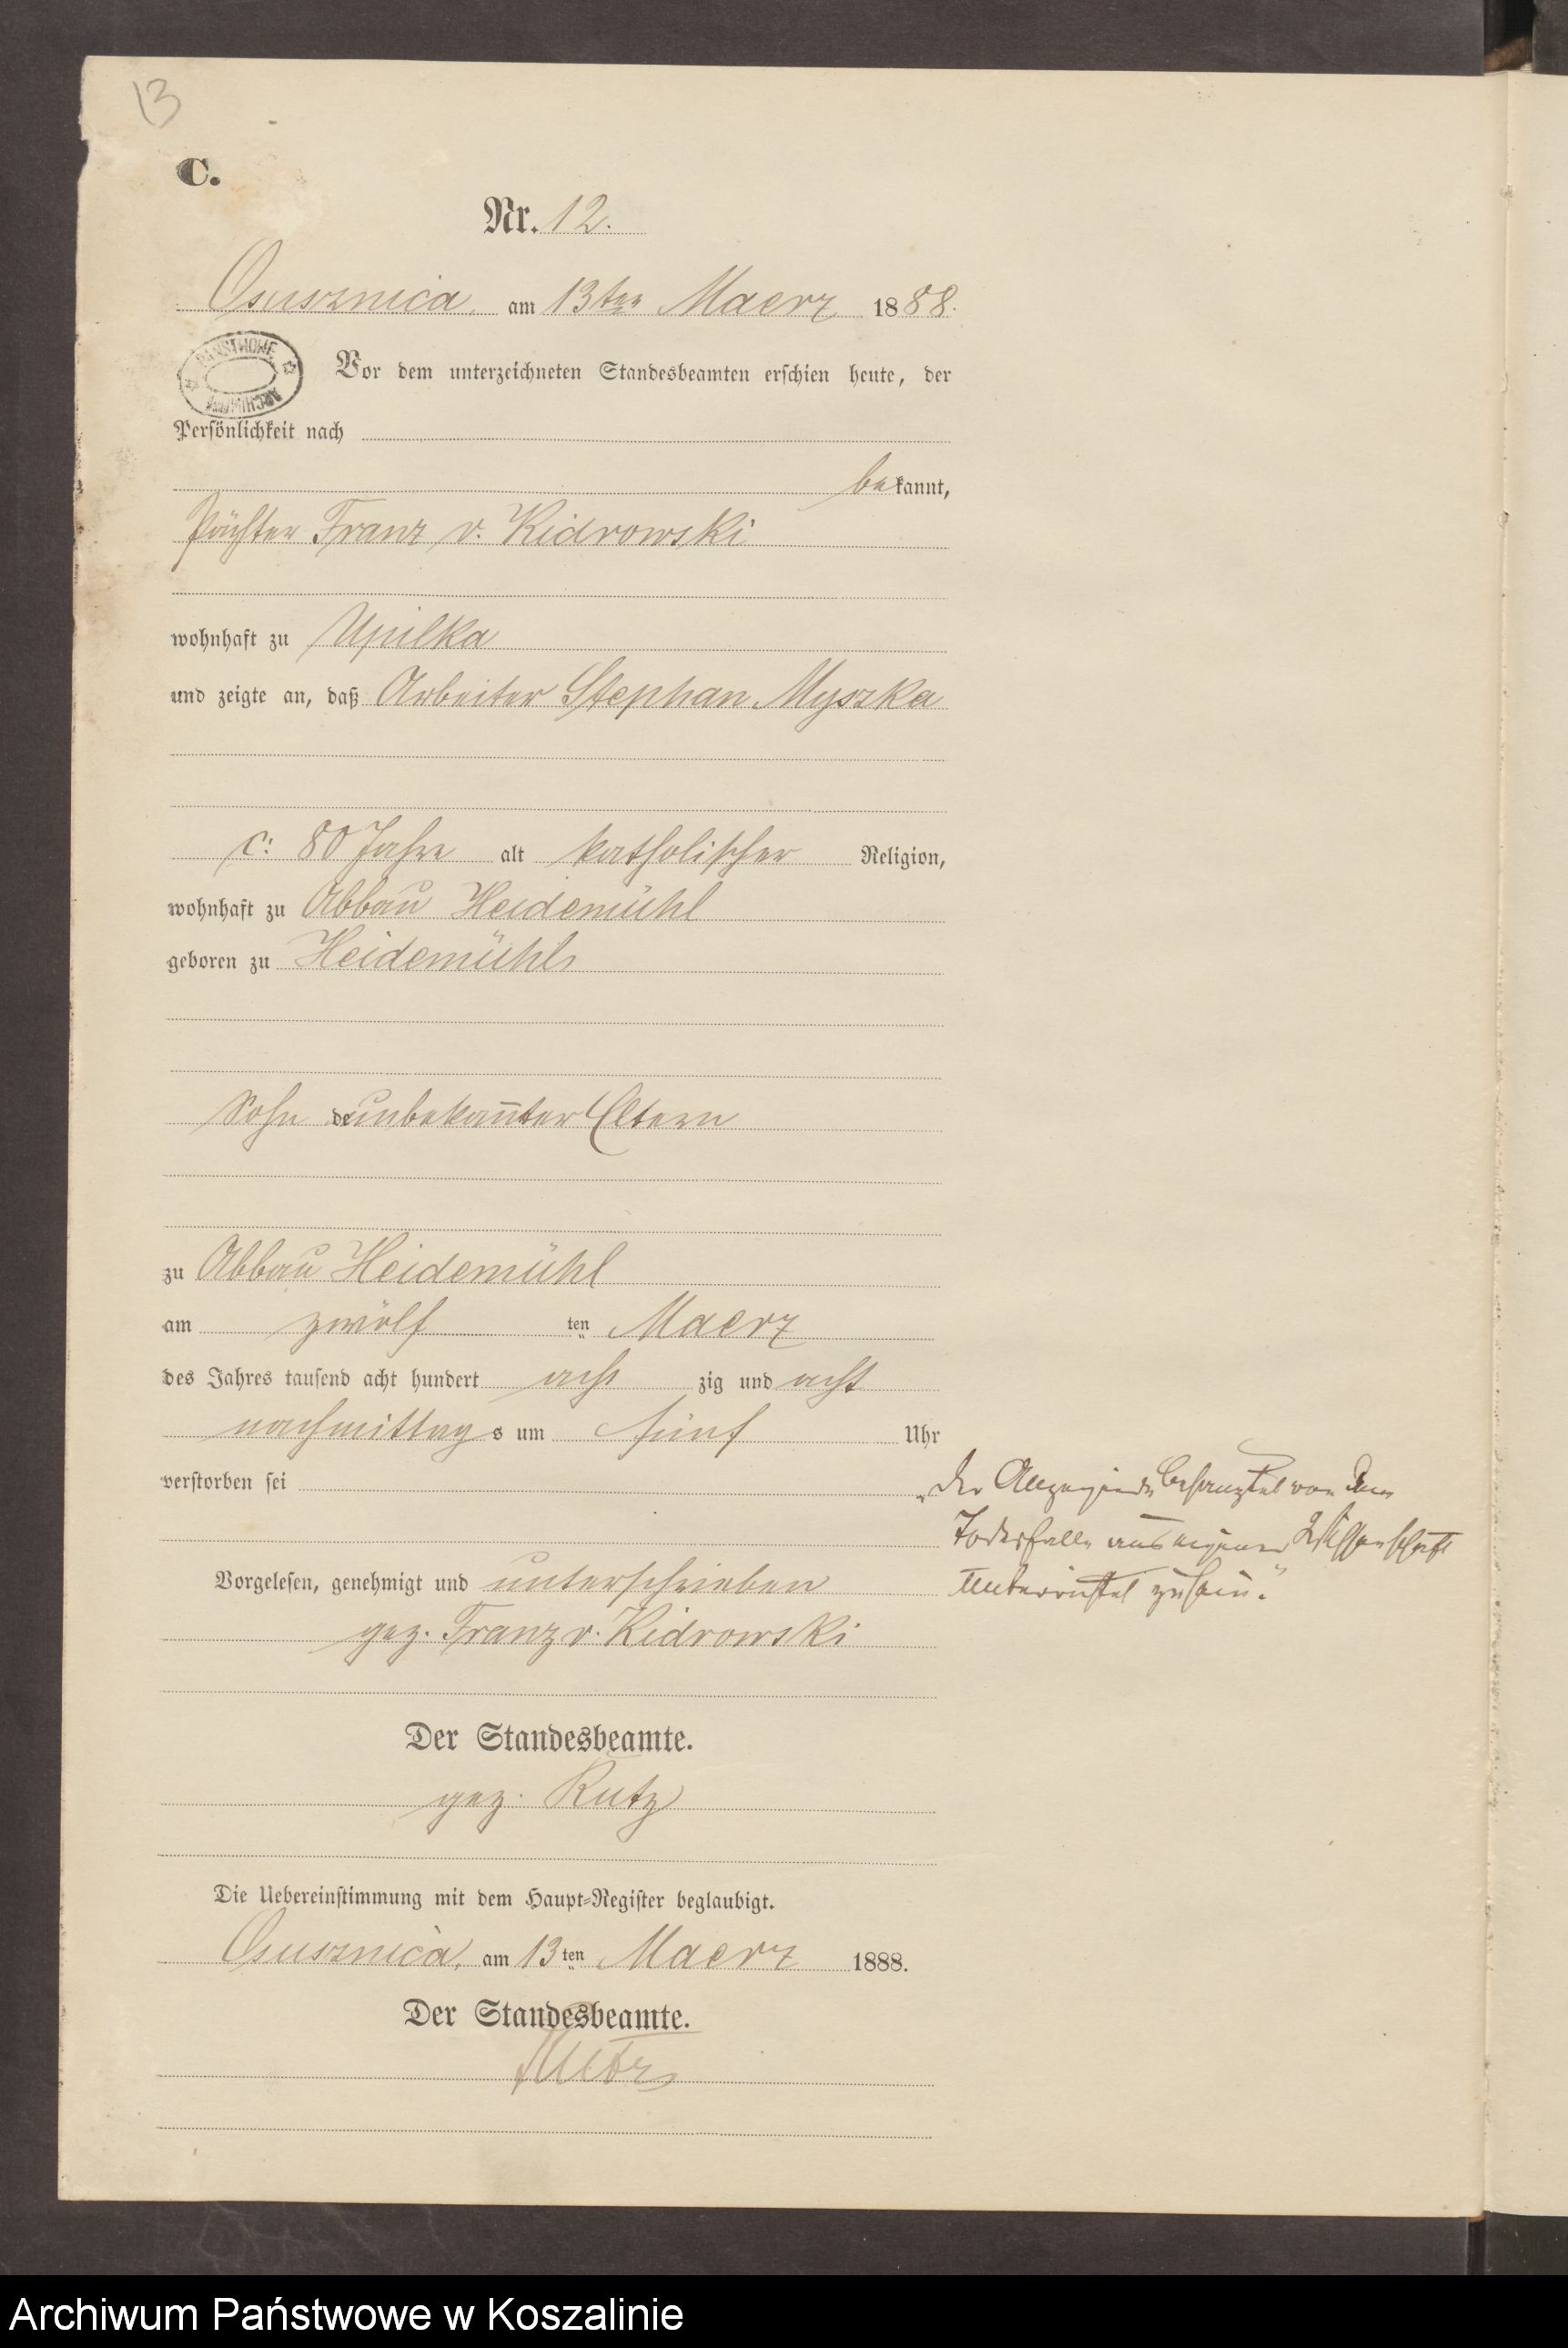 13
C.
Nr. 12.
Osusznica, am 13ten Maerz 1888.
PAŃSTWOWE ARCHIWUM
Vor dem unterzeichneten Standesbeamten erschien heute, der
Persönlichkeit nach
bekannt,
Pächter Franz v. Kidrowski
wohnhaft zu Upilka
und zeigte an, daß Arbeiter Stephan Myszka
c: 80 Jahre alt katholischer Religion,
wohnhaft zu Abbau Heidemühl
geboren zu Heidemühl
Sohn de unbekannter Eltern
zu Abbau Heidemühl
am zwölf ten Maerz
des Jahres tausend acht hundert acht zig und acht
nachmittags um fünf Uhr
verstorben sei
„Der Anzeigende behauptet von dem
Todesfalle aus eigener Wissenschaft
unterrichtet zu sein."
Vorgelesen, genehmigt und unterschrieben
gez. Franz v. Kidrowski
Der Standesbeamte.
gez. Kutz
Die Uebereinstimmung mit dem Haupt-Register beglaubigt.
Osusznica, am 13ten Maerz 1888.
Der Standesbeamte.
Kutz
Archiwum Państwowe w Koszalinie